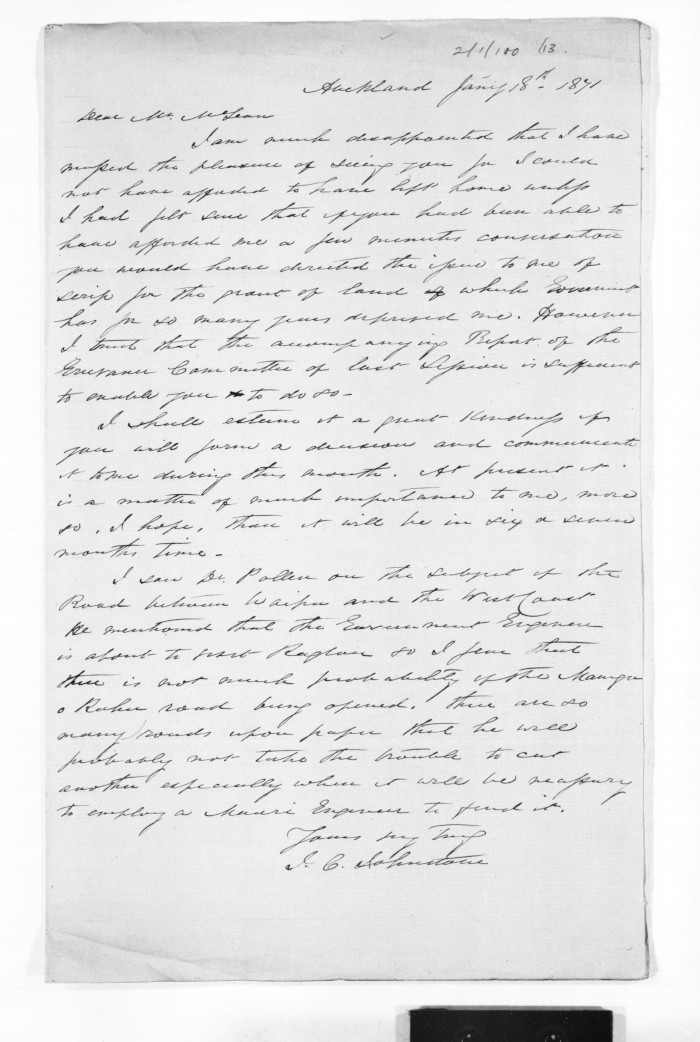 2/1/100 /13.
Auckland Jany 18th 1871
Dear Mr. McLean
I am much disappointed that I have
missed the pleasure of seeing you for I could
not have afforded to have left home unless
I had felt sure that if you had been able to
have afforded me a few minutes conversation
you would have directed the issue to me of
scrip for the grant of land of which Government
has for so many years deprived me. However
I trust that the accompanying Report of the
Grievance Committee of last Session is sufficient
to enable you to do so -
I shall esteem it a great Kindness if
you will form a decision and communicate
it to me during this month. At present it
is a matter of much importance to me, more
so, I hope, than it will be in six or seven
months time -
I saw Dr. Pollen on the subject of the
Road between Waipa and the West Coast
He mentioned that the Government Engineer
is about to visit Raglan so I fear that
there is not much probability of the Maunga
o Kahu road being opened. There are so
many roads upon paper that he will
probably not take the trouble to cut
another especially when it will be necessary
to employ a Maori Engineer to find it.
Yours very truly
J. C. Johnstone